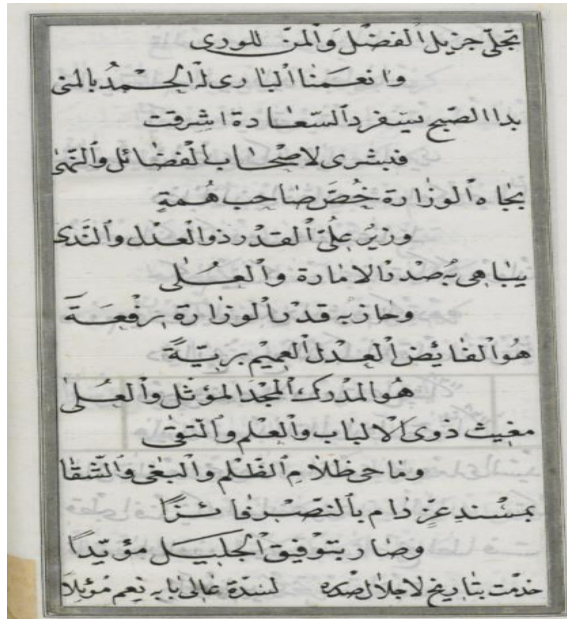 تجلّى جزيل الفضل والمنّ للورى
وانعمنا البارى له الحمد بالمنى
بدا الصبح يسفر والسعادة اشرقت
فبشرى لاصحاب الفضائل والنهى
بجاه الوزارة خصّ صاحب همة
وزير علىّ القدر ذو العدل والندى
يباهى به صدر الامارة والعلى
وحاز به قدر الوزارة رفعة
هو الفائض العدل العميم بريّة
هو المدرك المجد المؤثل والعلى
مغيث ذوى الالباب والعلم والتقى
وماحى ظلام الظلم والبغى والشقا
بمسند عزّ دام بالنصر فائزا
وصار بتوفيق الجليل مؤيّدا
خدمت بتاريخ لاجلال صدره لسدة عالى بابه نعم مؤئلا